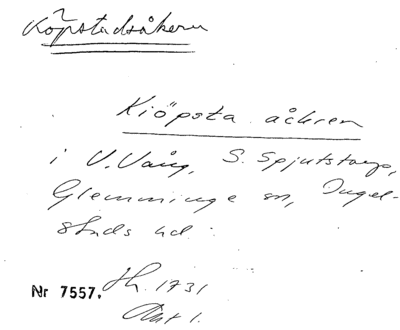 Köpstadsåkern
Kiöpsta åckren
i V. Vång, S. Spjutstorp,
Glemminge sn, Ingel-
stads hd.
Nr 7557. Lh. 1731
Akt 1.